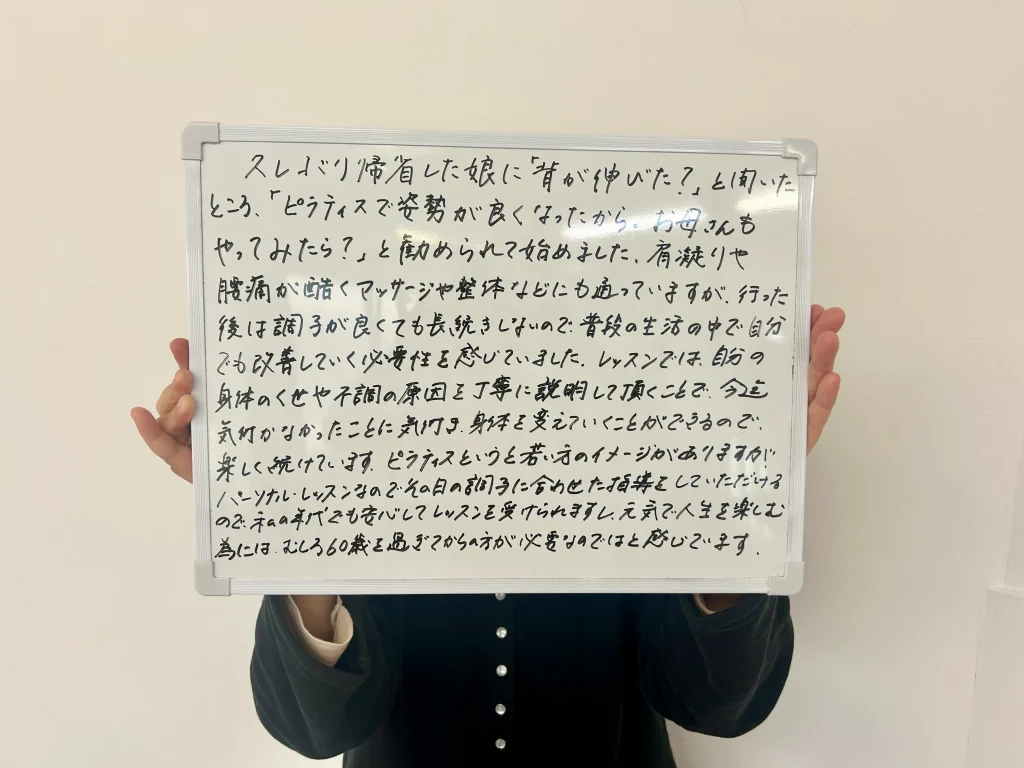 久しぶり帰省した娘に「背が伸びた？」と聞いた
ところ、「ピラティスで姿勢が良くなったから。お母さんも
やってみたら？」と勧められて始めました。肩凝りや
腰痛が酷くマッサージや整体などにも通っていますが、行った
後は調子が良くても長続きしないので、普段の生活の中で自分
でも改善していく必要性を感じていました。レッスンでは、自分の
身体のくせや不調の原因を丁寧に説明して頂くことで、今迄
気付かなかったことに気付き、身体を変えていくことができるので、
楽しく続けています。ピラティスというと若い方のイメージがありますが
パーソナル・レッスンなのでその日の調子に合わせた指導をしていただける
ので、私の年代でも安心してレッスンを受けられますし、元気で人生を楽しむ
為には、むしろ60歳を過ぎてからの方が必要なのではと感じています。